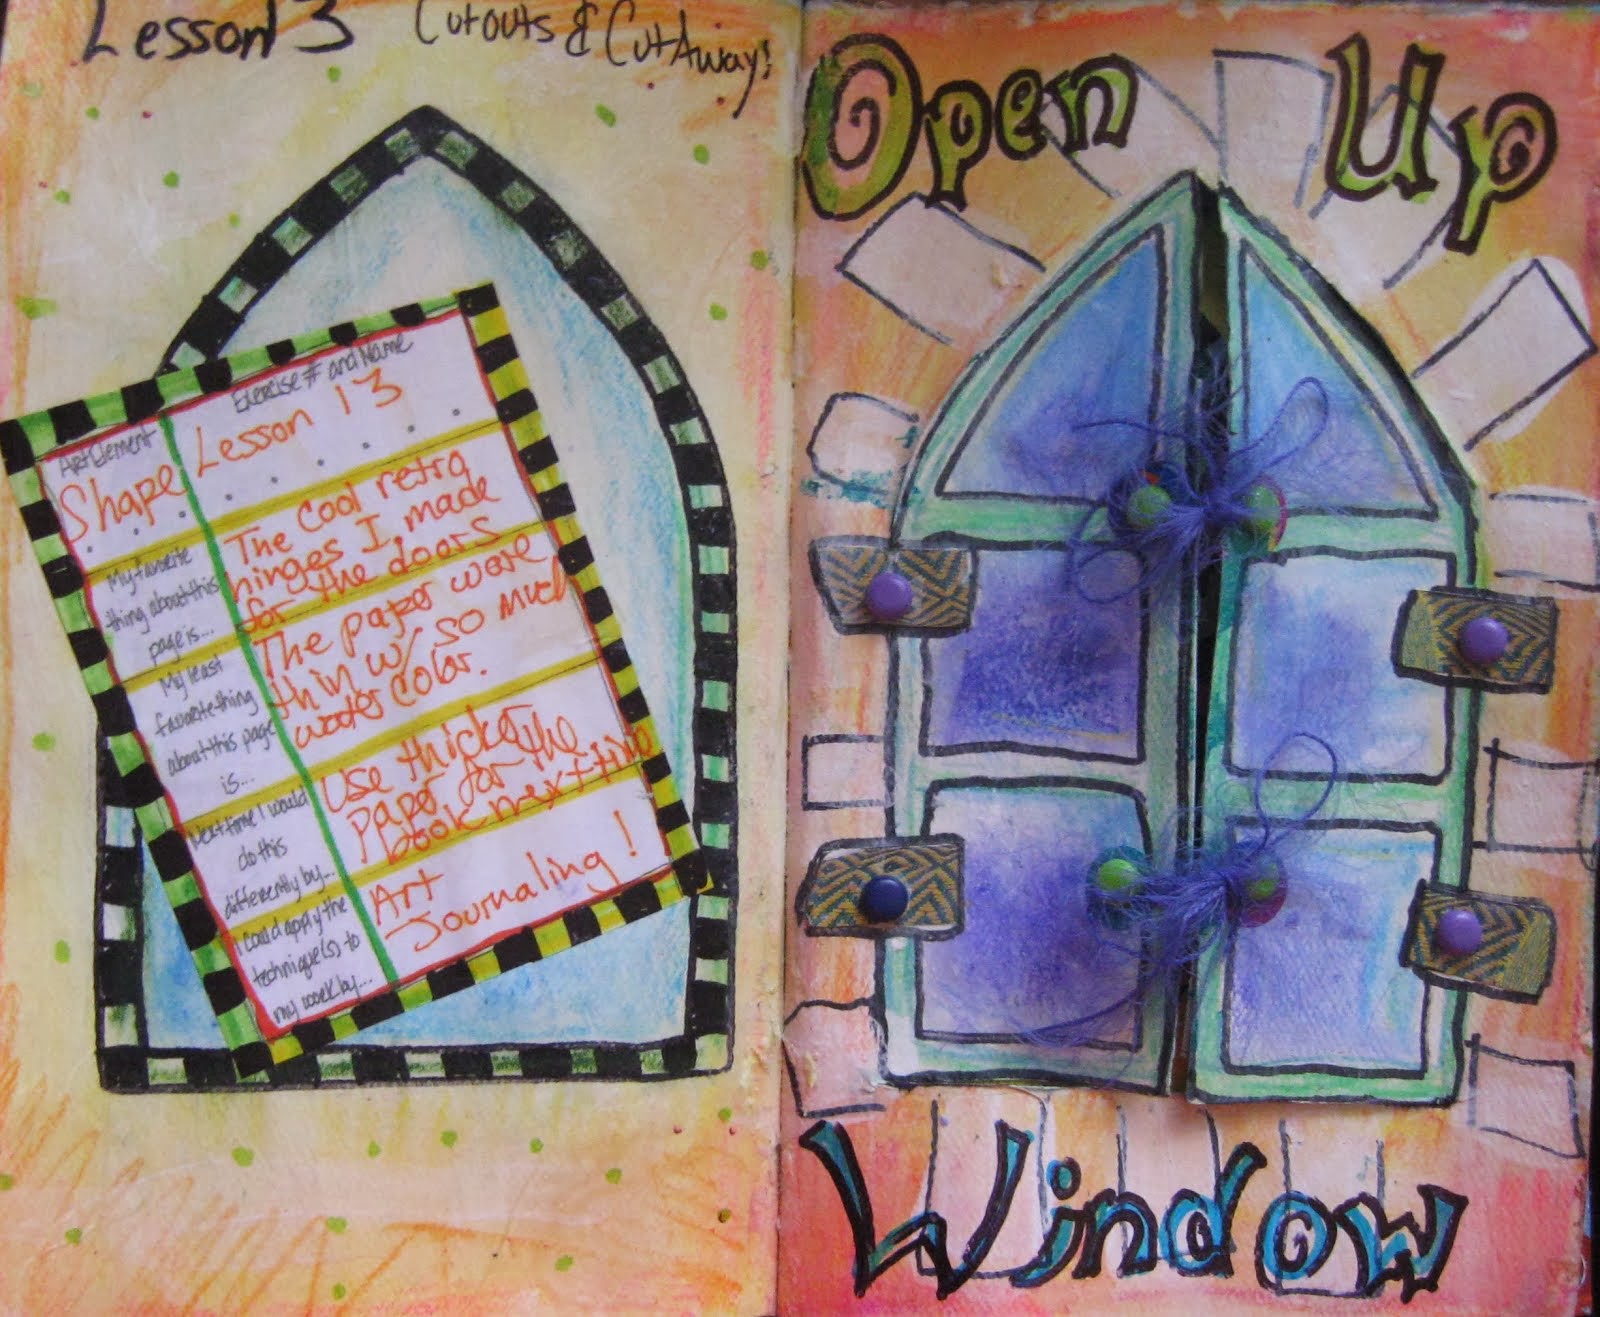 Lesson 3 Cutouts & CutAways!
Exercise # and Name
Lesson 13
Art Element
Shape
My favorite
thing about this
page is...
The cool retro
hinges I made
for the doors
My least
favorite thing
about this page
is...
The paper were
thin w/ so much
water color.
Next time I would
do this
differently by...
Use thicker
paper for the
book next time
I could apply the
technique(s) to
my work by...
Art
Journaling!
Open Up
Window